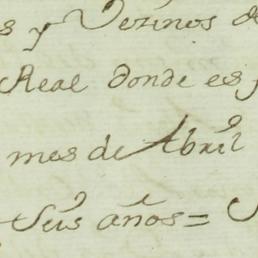 s y Vezinos de
Real donde es
mes de Abril
Seis años =